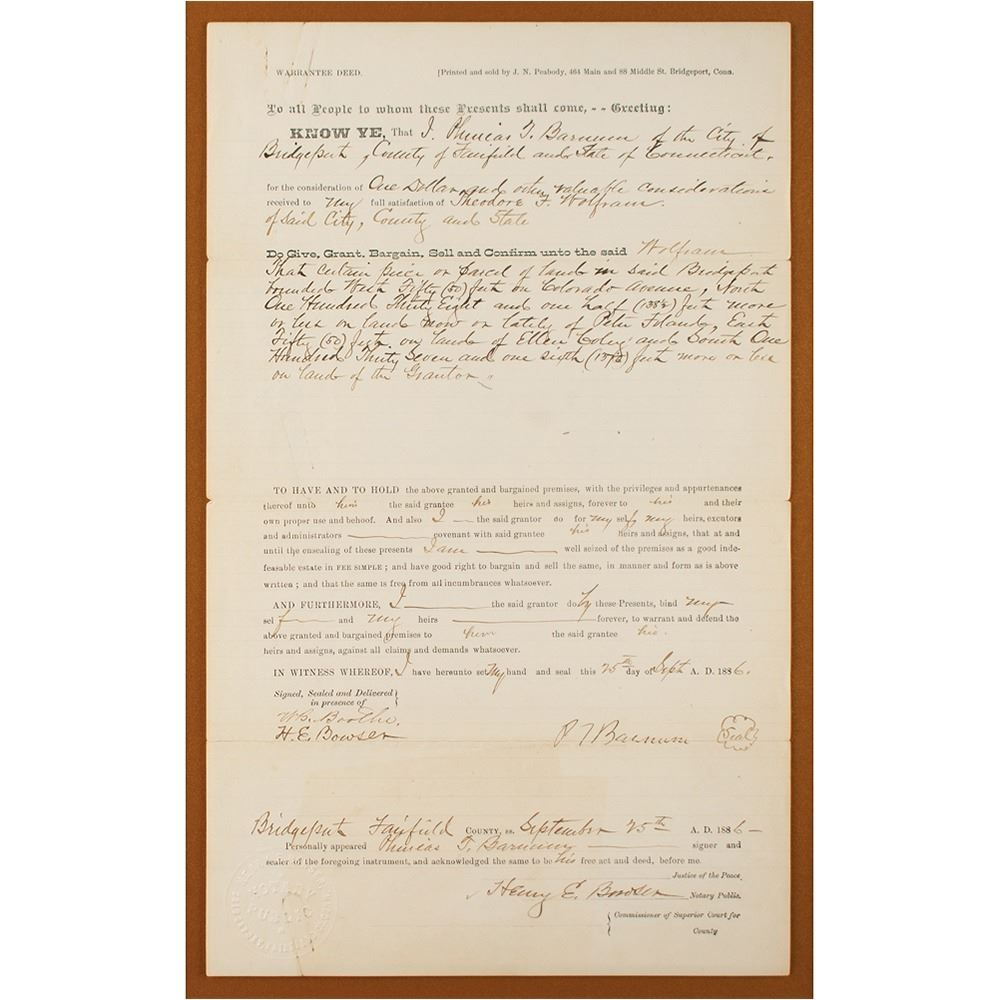 WARRANTEE DEED. [Printed and sold by J. N. Peabody, 464 Main and 88 Middle St. Bridgeport, Conn.
To all People to whom these Presents shall come, - - Greeting:
KNOW YE, That I, Phineas T. Barnum of the City of
Bridgeport, County of Fairfield and State of Connecticut,
for the consideration of One Dollar and other valuable considerations
received to my full satisfaction of Theodore F. Wolfram.
of Said City, County and State
Do Give, Grant, Bargain, Sell and Confirm unto the said Wolfram
That certain piece or parcel of land in said Bridgeport
bounded West Fifty (50) feet on Colorado Avenue, North
One Hundred Thirty Eight and one half (138½) feet more
or less on land now or lately of Peter, East
Fifty (50) feet on land of Ellen Coley and South One
Hundred Thirty Seven and one sixth feet more or less
on land of the Grantor.
TO HAVE AND TO HOLD the above granted and bargained premises, with the privileges and appurtenances
thereof unto him the said grantee his heirs and assigns, forever to his and their
own proper use and behoof. And also I the said grantor do for my self my heirs, executors
and administrators covenant with said grantee his heirs and assigns, that at and
until the ensealing of these presents I am well seized of the premises as a good inde-
feasable estate in FEE SIMPLE; and have good right to bargain and sell the same, in manner and form as is above
written; and that the same is free from all incumbrances whatsoever.
AND FURTHERMORE, I the said grantor do by these Presents, bind my
sel f and my heirs forever, to warrant and defend the
above granted and bargained premises to him the said grantee his
heirs and assigns, against all claims and demands whatsoever.
IN WITNESS WHEREOF, I have hereunto set my hand and seal this 25th day of Sept A. D. 1886.
Signed, Sealed and Delivered
in presence of
W.B. Boothe,
H. E. Bowser P T Barnum Seal
Bridgeport Fairfield COUNTY, ss. September 25th A. D. 1886
Personally appeared Phineas T. Barnum signer and
sealer of the foregoing instrument, and acknowledged the same to be his free act and deed, before me.
Justice of the Peace
Henry E. Bowser Notary Public.
Commissioner of Superior Court for
County
NOTARY
PUBLIC